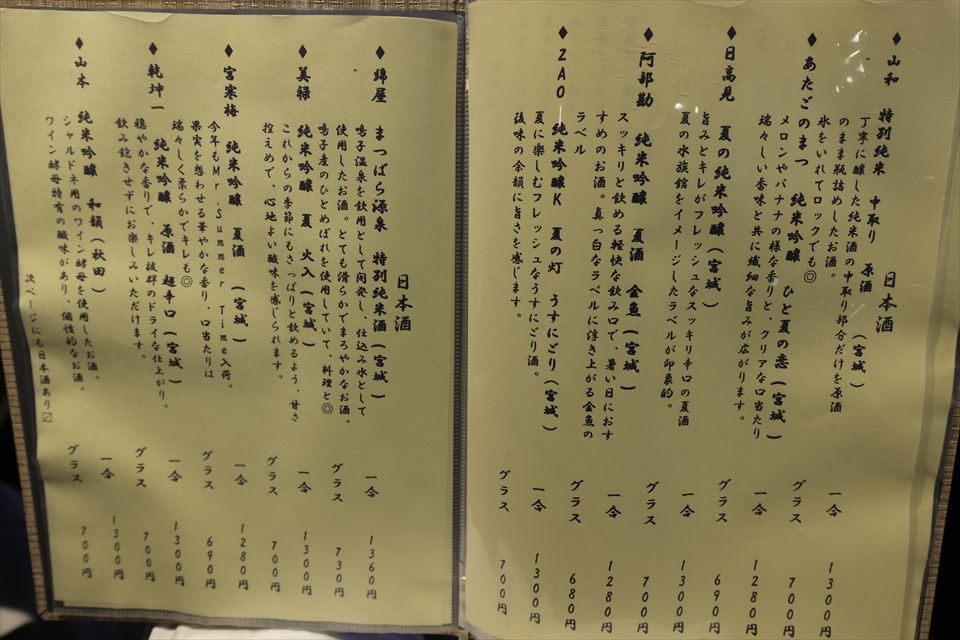 日本酒
◆山和 特別純米 中取り 原酒 (宮城)
丁寧に醸した純米酒の中取り部分だけを原酒
のまま瓶詰めしたお酒。
氷をいれてロックでも◎
一合 1300円
グラス 700円
◆あたごのまつ 純米吟醸 ひと夏の恋(宮城)
メロンやバナナの様な香りと、クリアな口当たり
瑞々しい香味と共に繊細な旨みが広がります。
一合 1280円
グラス 690円
◆日高見 夏の純米吟醸(宮城)
旨みとキレがフレッシュなスッキリ辛口の夏酒
夏の水族館をイメージしたラベルが印象的。
一合 1300円
グラス 700円
◆阿部勘 純米吟醸 夏酒 金魚(宮城)
スッキリと飲める軽快な飲み口で、暑い日におす
すめのお酒。真っ白なラベルに浮き上がる金魚の
ラベル
一合 1280円
グラス 680円
◆ZAO 純米吟醸K 夏の灯 うすにごり(宮城)
夏に楽しむフレッシュなうすにごり酒。
後味の余韻に旨さを感じます。
一合 1300円
グラス 700円
日本酒
◆綿屋 まつばら源泉 特別純米酒(宮城)
鳴子温泉を飲用として開発し、仕込み水として
使用したお酒。とても滑らかでまろやかなお酒。
鳴子産のひとめぼれを使用していて、料理と◎
一合 1360円
グラス 730円
◆美禄 純米吟醸 夏 火入(宮城)
これからの季節にもさっぱりと飲めるよう、甘さ
控えめで、心地よい酸味を感じられます。
一合 1300円
グラス 700円
◆宮寒梅 純米吟醸 夏酒 (宮城)
今年もMr.Summer Time入荷。
果実を想わせる華やかな香り、口当たりは
瑞々しく柔らかでキレも◎
一合 1280円
グラス 690円
◆乾坤一 純米吟醸 原酒 超辛口(宮城)
穏やかな香りで、キレ抜群のドライな仕上がり。
飲み飽きせずにお楽しみいただけます。
一合 1300円
グラス 700円
◆山本 純米吟醸 和韻(秋田)
シャルドネ用のワイン酵母を使用したお酒。
ワイン酵母特有の酸味があり、個性的なお酒。
一合 1300円
グラス 700円
次ページにも日本酒あり〼